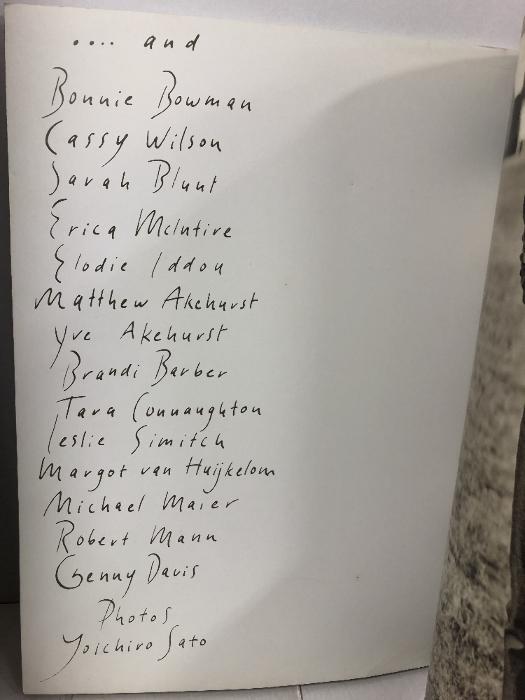 .... and
Bonnie Bowman
Cassy Wilson
Sarah Blunt
Erica McIntire
Elodie Iddou
Matthew Akehurst
Yve Akehurst
Brandi Barber
Tara Connaughton
Leslie Simitch
Margot van Huijkelom
Michael Maier
Robert Mann
Genny Davis
Photos
Yoichiro Sato